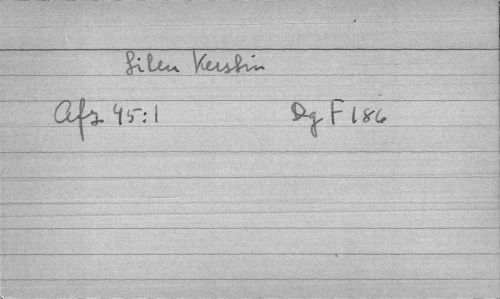 Liten Kerstin
Afz 45:1 Dg F 186